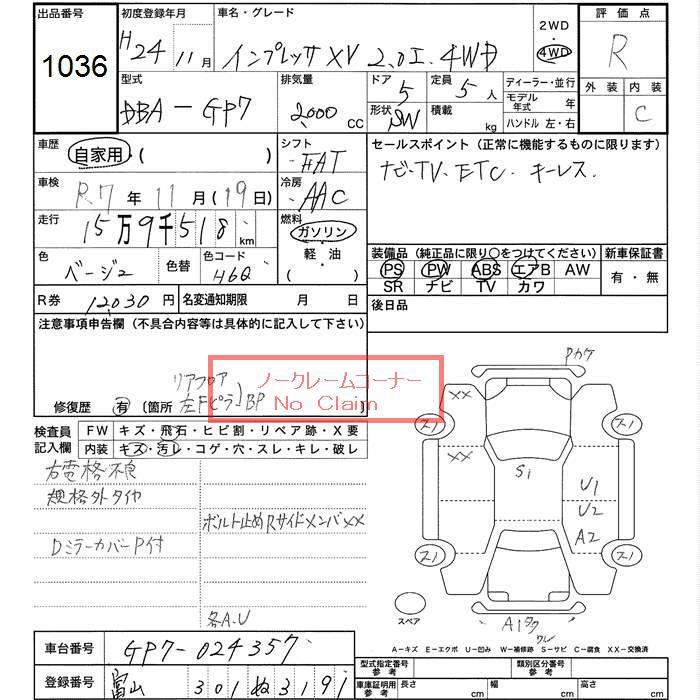 出品番号
1036
初度登録年月
H24 11月
車名・グレード
インプレッサXV 2.0I. 4WD
2WD
・
4WD
評価点
R
外装 内装
C
型式
DBA-GP7
排気量
2000 CC
ドア 5
形状 SW
定員 5人
積載 kg
ディーラー・並行
モデル年式 年
ハンドル 左・右
車歴
自家用・( )
シフト
FAT
セールスポイント(正常に機能するものに限ります)
ナビ・TV・ETC. キーレス.
車検
R7年11月(19日)
冷房
AAC
走行
15万9千518km
燃料
ガソリン
・
軽油
( )
色
ベージュ
色替
色コード
46Q
装備品(純正品に限り〇をつけてください)
PS PW ABS エアB AW
SR ナビ TV カワ
新車保証書
有・無
R券 12030円
名変通知期限 月 日
後日品
注意事項申告欄(不具合内容等は具体的に記入して下さい)
リアフロア
左Fピラー BP
修復歴 有 〔箇所 〕
ノークレームコーナー
No Claim
検査員記入欄
FW キズ・飛石・ヒビ割・リペア跡・X要
内装 キズ・汚レ・コゲ・穴・スレ・キレ・破レ
右電格不良
規格外タイヤ
ボルト止めRサイドメンバXX
DミラーカバーP付
各A.U
Pカケ
XX
スノ
スノ
XX
S1
U1
U2
A2
スノ
スノ
スペア
A1タク
ワレ
A-キズ E-エクボ U-凹み W-補修跡 S-サビ C-腐食 XX-交換済
車台番号 GP7-024357
登録番号 富山 301 ぬ 3191
型式指定番号 参考
類別区分番号 参考
車庫証明用 参考 長さ cm 幅 cm 高さ cm